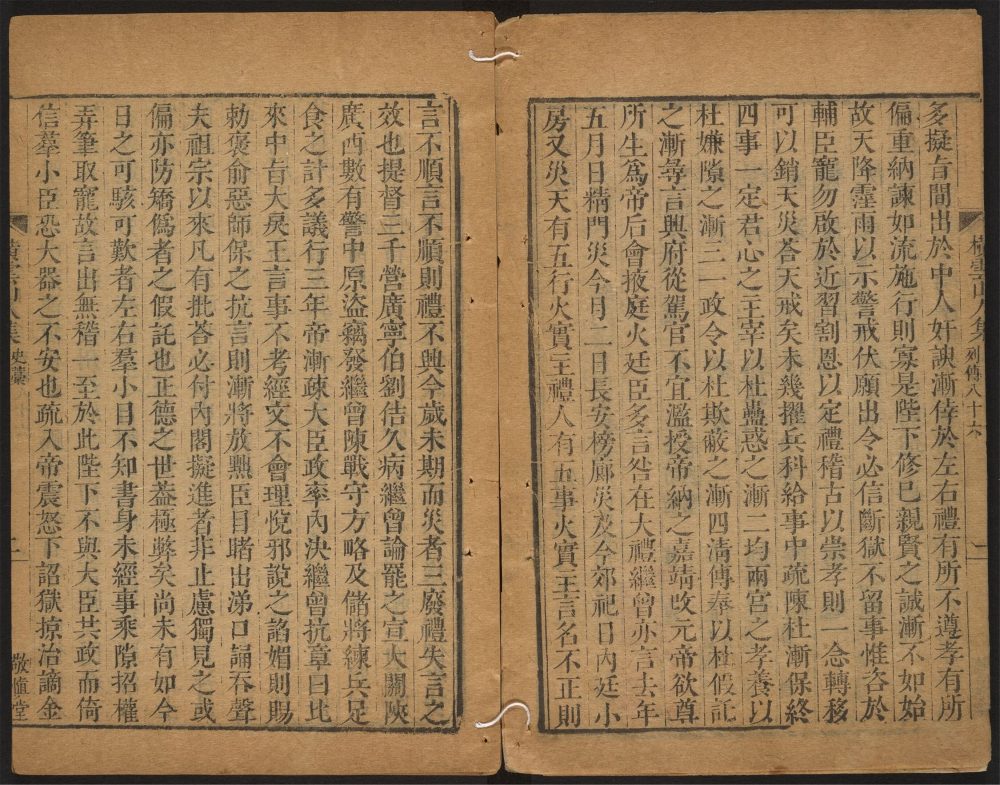 橫雲山人集
列傳八十六
多擬旨間出於中人奸諛漸倖於左右禮有所不遵孝有所
偏重納諫如流施行則寡是陛下修已親賢之誠漸不如始
故天降霪雨以示警戒伏願出令必信斷獄不留事惟咨於
輔臣寵勿啟於近習割恩以定禮稽古以崇孝則一念轉移
可以銷天災荅天戒矣未幾擢兵科給事中疏陳杜漸保終
四事一定君心之主宰以杜蠱惑之漸二均兩宮之孝養以
杜嫌隙之漸三一政令以杜欺蔽之漸四清傳奉以杜假託
之漸尋言興府從駕官不宜濫授帝納之嘉靖改元帝欲尊
所生爲帝后會掖庭火廷臣多言咎在大禮繼曾亦言去年
五月日精門災今月二日長安榜廊災及今郊祀日內廷小
房又災天有五行火實主禮人有五事火實主言名不正則
言不順言不順則禮不興今歲未期而災者三廢禮失言之
效也提督三千營廣寧伯劉佶久病繼曾論罷之宣大關陝
廣西數有警中原盜竊發繼曾陳戰守方略及儲將練兵足
食之計多議行三年帝漸疎大臣政率內決繼曾抗章曰比
來中旨大戾王言事不考經文不會理悅邪說之諂媚則賜
勅褒俞惡師保之抗言則漸將放黜臣目睹出涕口誦吞聲
夫祖宗以來凡有批荅必付內閣擬進者非止慮獨見之或
偏亦防矯僞者之假託也正德之世葢極弊矣尚未有如今
日之可駭可歎者左右羣小目不知書身未經事乘隙招權
弄筆取寵故言出無稽一至於此陛下不與大臣共政而倚
信羣小臣恐大器之不安也疏入帝震怒下詔獄掠治謫金
橫雲山人集
史藁
二
敬愼堂